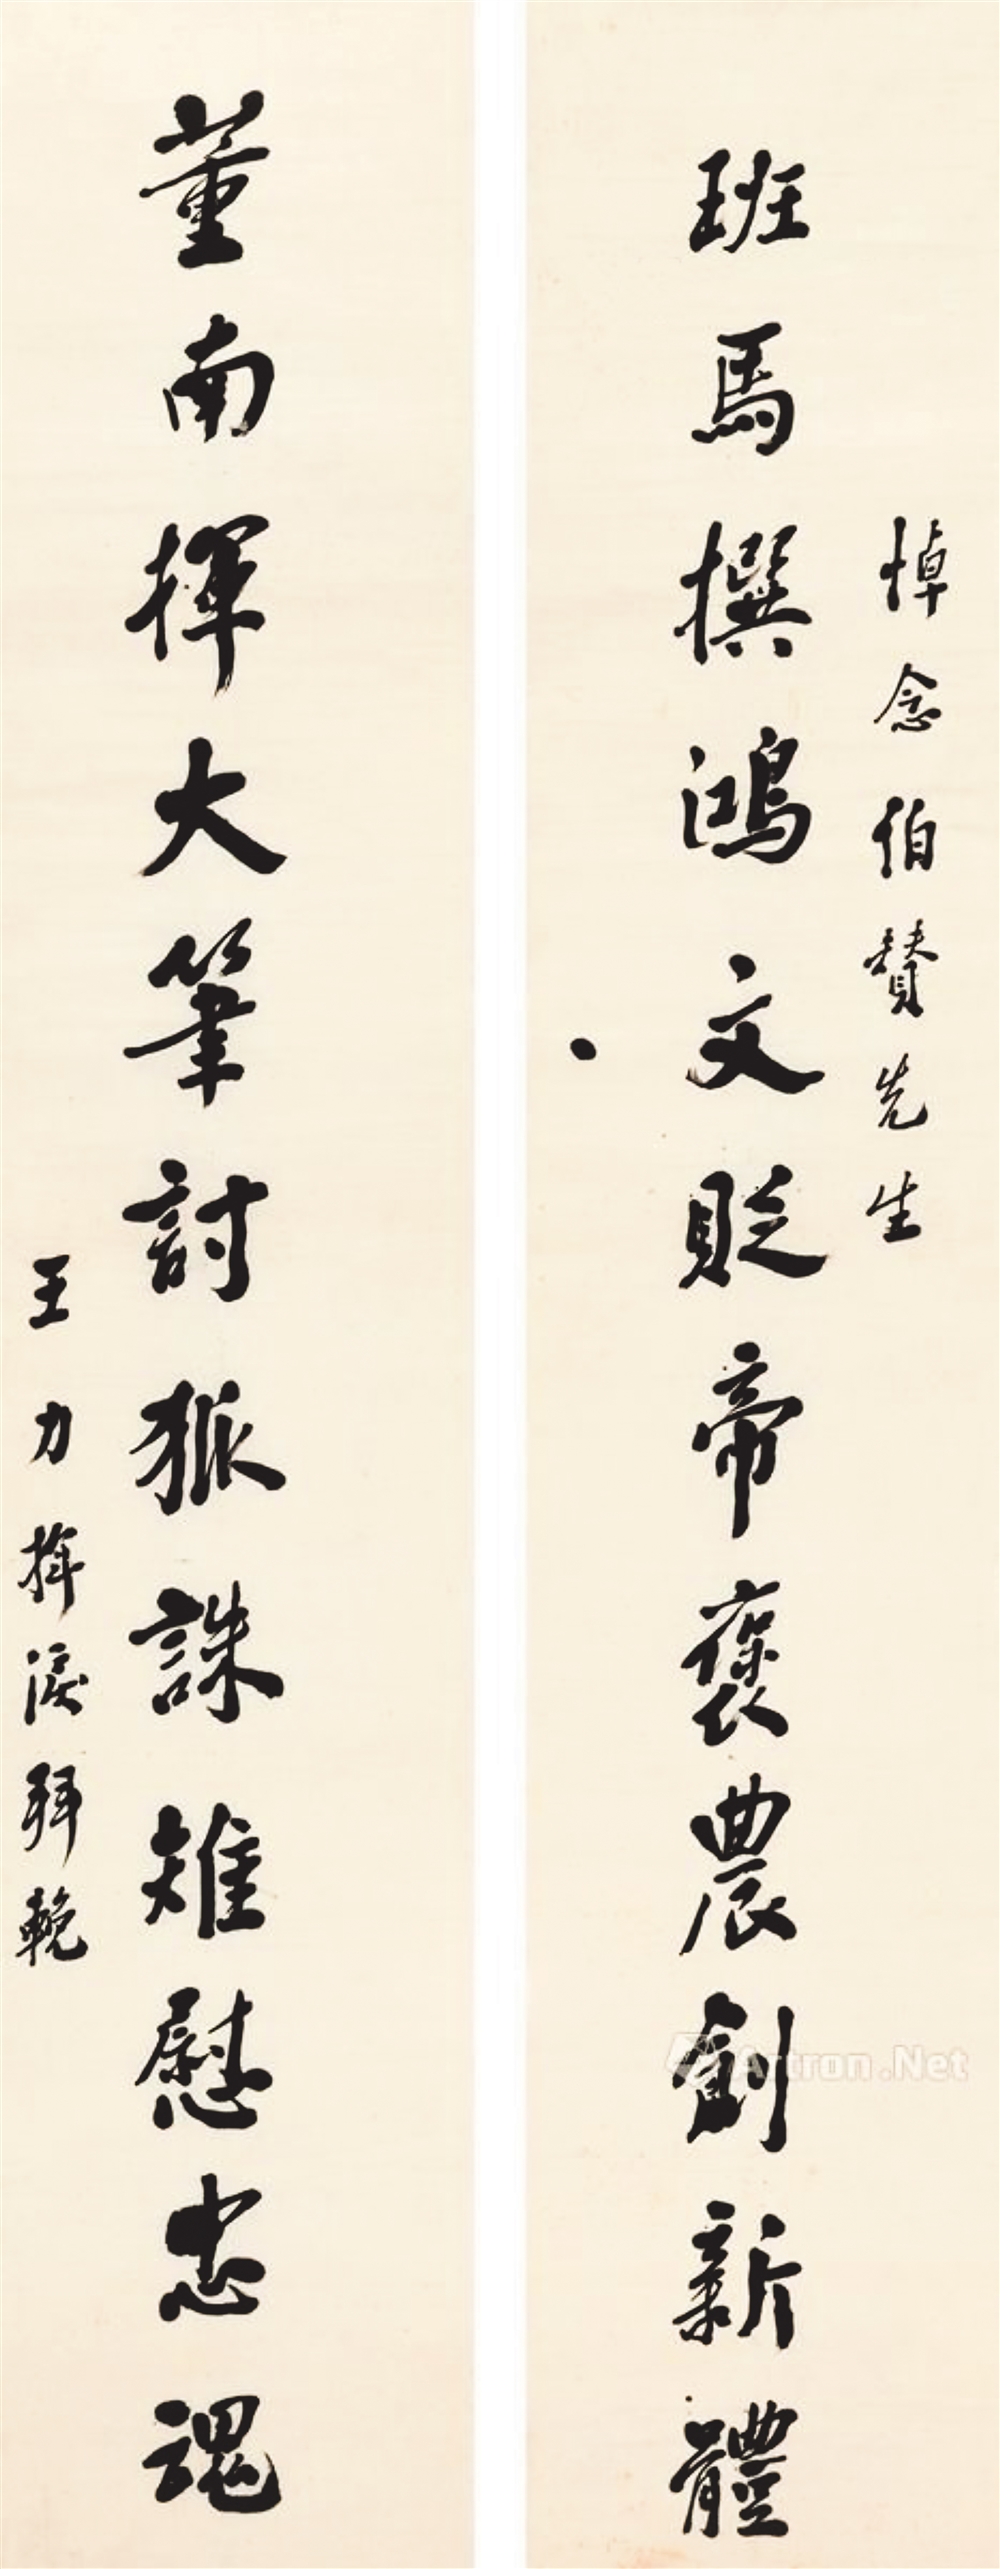 悼念伯贊先生
班馬撰鴻文貶帝褒農創新體
董南揮大筆討狐誅雉慰忠魂
王力揮淚拜輓
Artron.Net